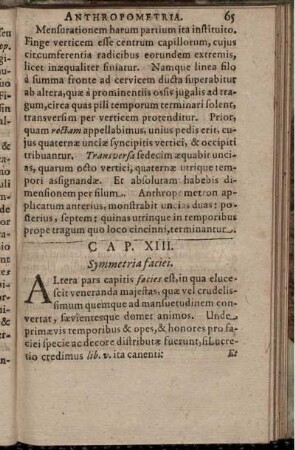 ANTHROPOMETRIA. 65
Mensurationem harum partium ita instituito.
Finge verticem esse centrum capillorum, cujus
circumferentia radicibus eorundem extremis,
licet inæqualiter finiatur. Namque linea filo
à summa fronte ad cervicem ducta superabitur
ab altera, quæ à prominentiis ossis jugalis ad tra-
gum, circa quas pili temporum terminari solent,
transversim per verticem protenditur. Prior,
quam rectam appellabimus, unius pedis erit, cu-
jus quaternæ unciæ syncipitis vertici, & occipiti
tribuantur. Transversa sedecim æquabit unci-
as, quarum octo vertici, quaternæ utrique tem-
pori assignandæ. Et absolutam habebis di-
mensionem per filum. Anthropometron ap-
plicatum anterius, monstrabit uncias duas: po-
sterius, septem: quinas utrinque in temporibus
prope tragum quo loco cincinni, terminantur.
CAP. XIII.
Symmetria faciei.
Altera pars capitis facies est, in qua eluce-
scit veneranda majestas, quæ vel crudelis-
simum quemque ad mansuetudinem con-
vertat, sævientesque domet animos. Unde
primævis temporibus & opes, & honores pro fa-
ciei specie ac decore distributæ fuerunt, si Lucre-
tio credimus lib. v. ita canenti:
Et